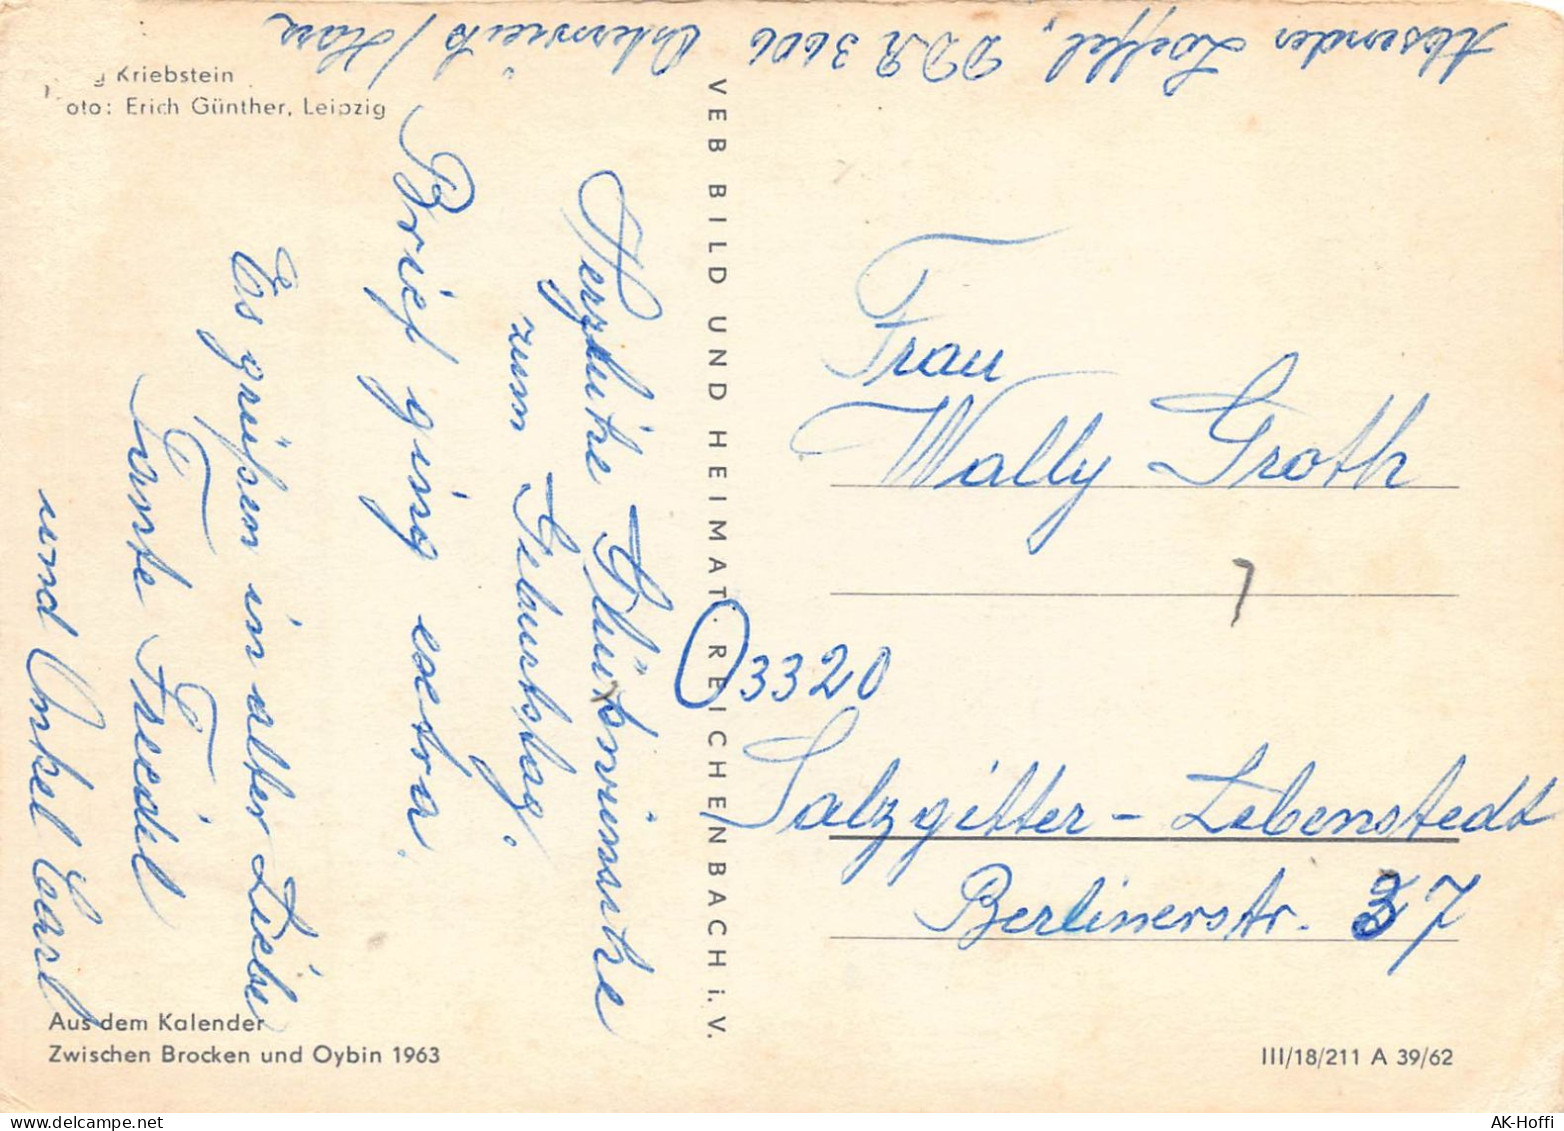 Absender Loeffel, DDR 3606 Osterwieck/Harz
Kriebstein
oto: Erich Günther, Leipzig
Herzliche Glückwünsche
zum Geburtstag.
Brief ging extra.
Es grüßen in alter Liebe
Tante Friedel
und Onkel Carl
VEB BILD UND HEIMAT. REICHENBACH i. V.
Frau
Wally Groth
7
3320
Salzgitter - Lebenstedt
Berlinerstr. 37
Aus dem Kalender
Zwischen Brocken und Oybin 1963
III/18/211 A 39/62
AK-Hoffi